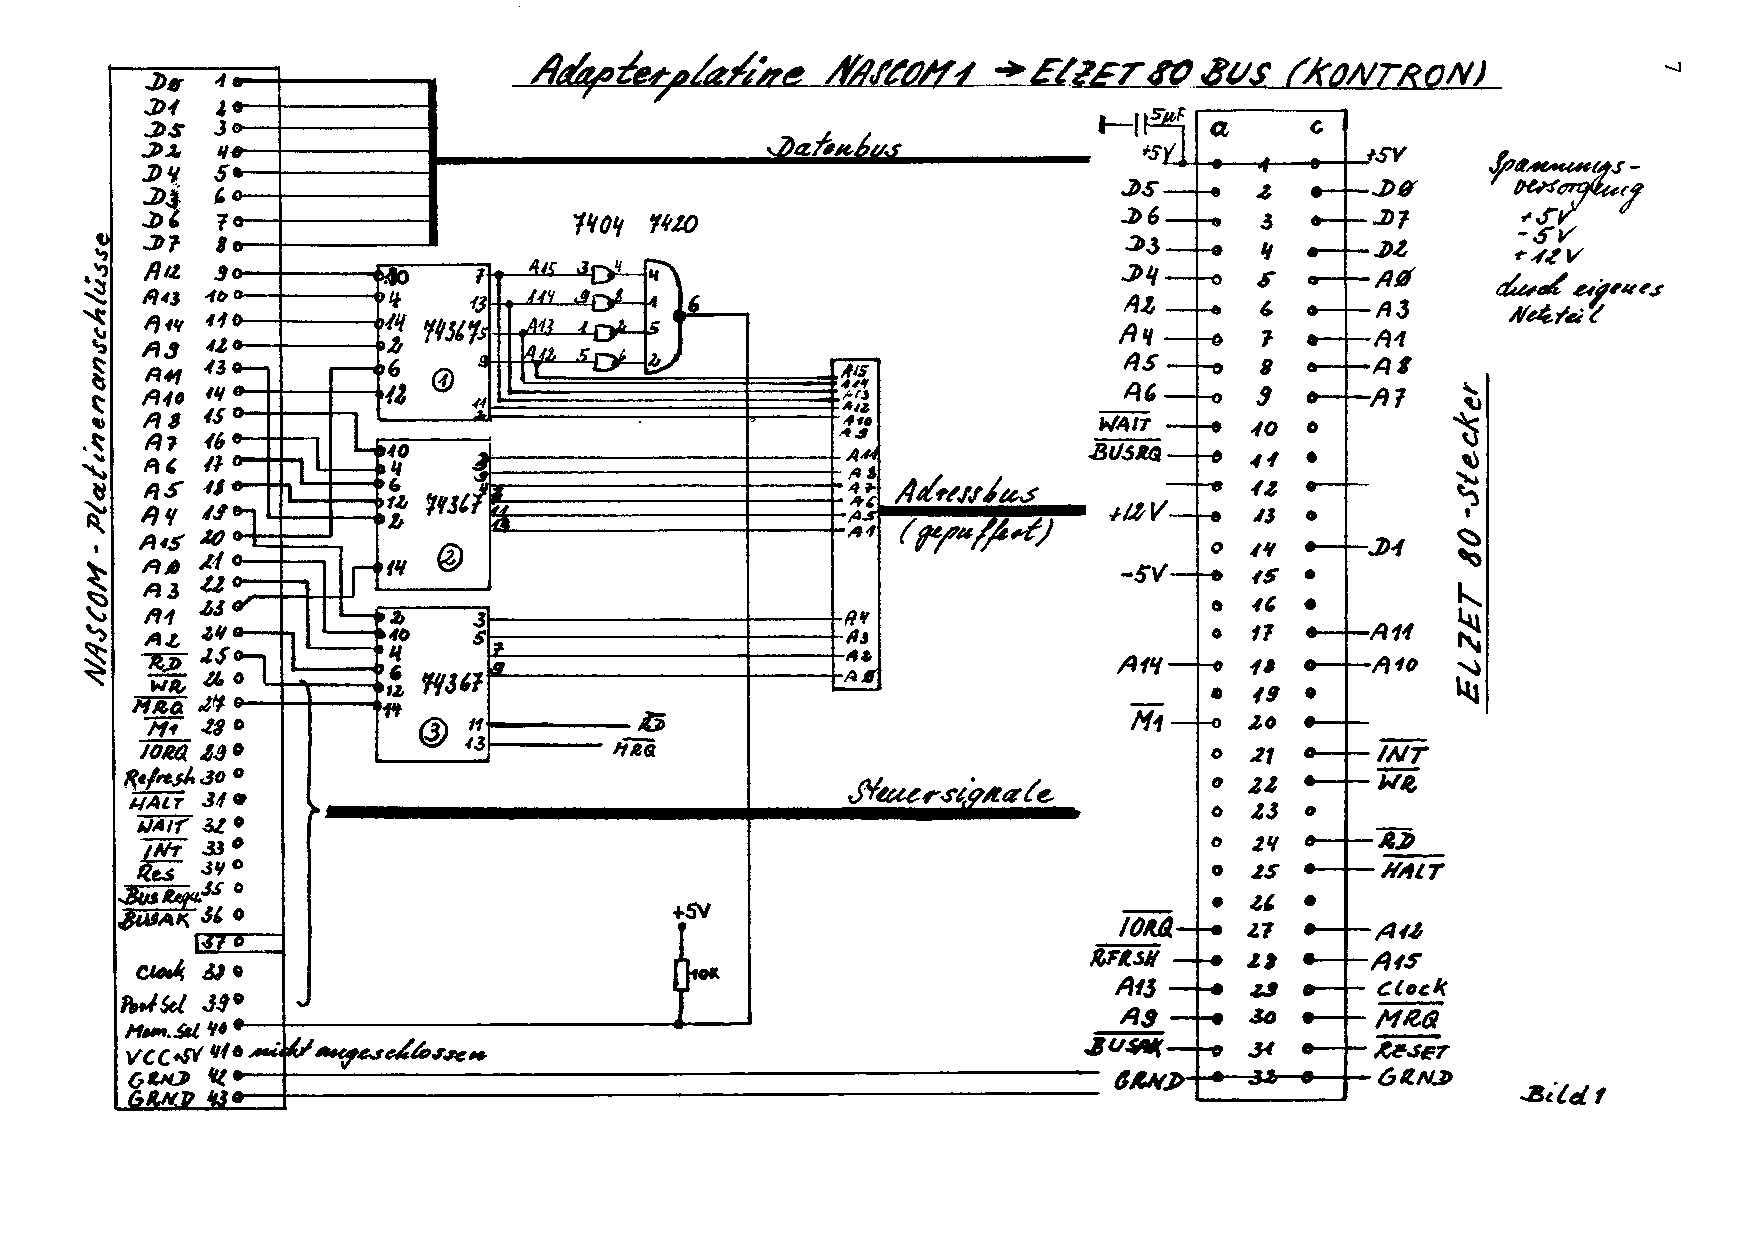 Adapterplatine NASCOM1 → ELZET 80 BUS (KONTRON)
NASCOM - Platinenanschlüsse
D0 1
D1 2
D5 3
D2 4
D4 5
D3 6
D6 7
D7 8
A12 9
A13 10
A14 11
A9 12
A11 13
A10 14
A8 15
A7 16
A6 17
A5 18
A4 19
A15 20
A0 21
A3 22
A1 23
A2 24
RD 25
WR 26
MRQ 27
M1 28
IORQ 29
Refresh 30
HALT 31
WAIT 32
INT 33
Res 34
Bus Requ. 35
BUSAK 36
37
Clock 38
Port Sel 39
Mem. Sel 40
VCC+5V 41 nicht angeschlossen
GRND 42
GRND 43
Datenbus
7404 7420
10 7 A15 3 4 4
4 13 114 9 8 1
14 74367 5 A13 1 2 5
2 9 A12 5 6 2
6
6
12
1
11
3
10
4
6
12
2
14
74367
2
3
11
13
2
10
4
6
12
14
74367
3
3
5
7
9
11 RD
13 MRQ
A15
A14
A13
A12
A10
A9
A11
A8
A7
A6
A5
A1
A4
A3
A2
A0
Adressbus
(gepuffert)
Steuersignale
+5V
10K
5µF
a c
+5V 1 +5V
D5 2 D0
D6 3 D7
D3 4 D2
D4 5 A0
A2 6 A3
A4 7 A1
A5 8 A8
A6 9 A7
WAIT 10
BUSRQ 11
12
+12V 13
14 D1
-5V 15
16
17 A11
A14 18 A10
19
M1 20
21 INT
22 WR
23
24 RD
25 HALT
26
IORQ 27 A12
RFRSH 28 A15
A13 29 Clock
A9 30 MRQ
BUSAK 31 RESET
GRND 32 GRND
ELZET 80-Stecker
Spannungs-
versorgung
+5V
-5V
+12V
durch eigenes
Netzteil
Bild 1